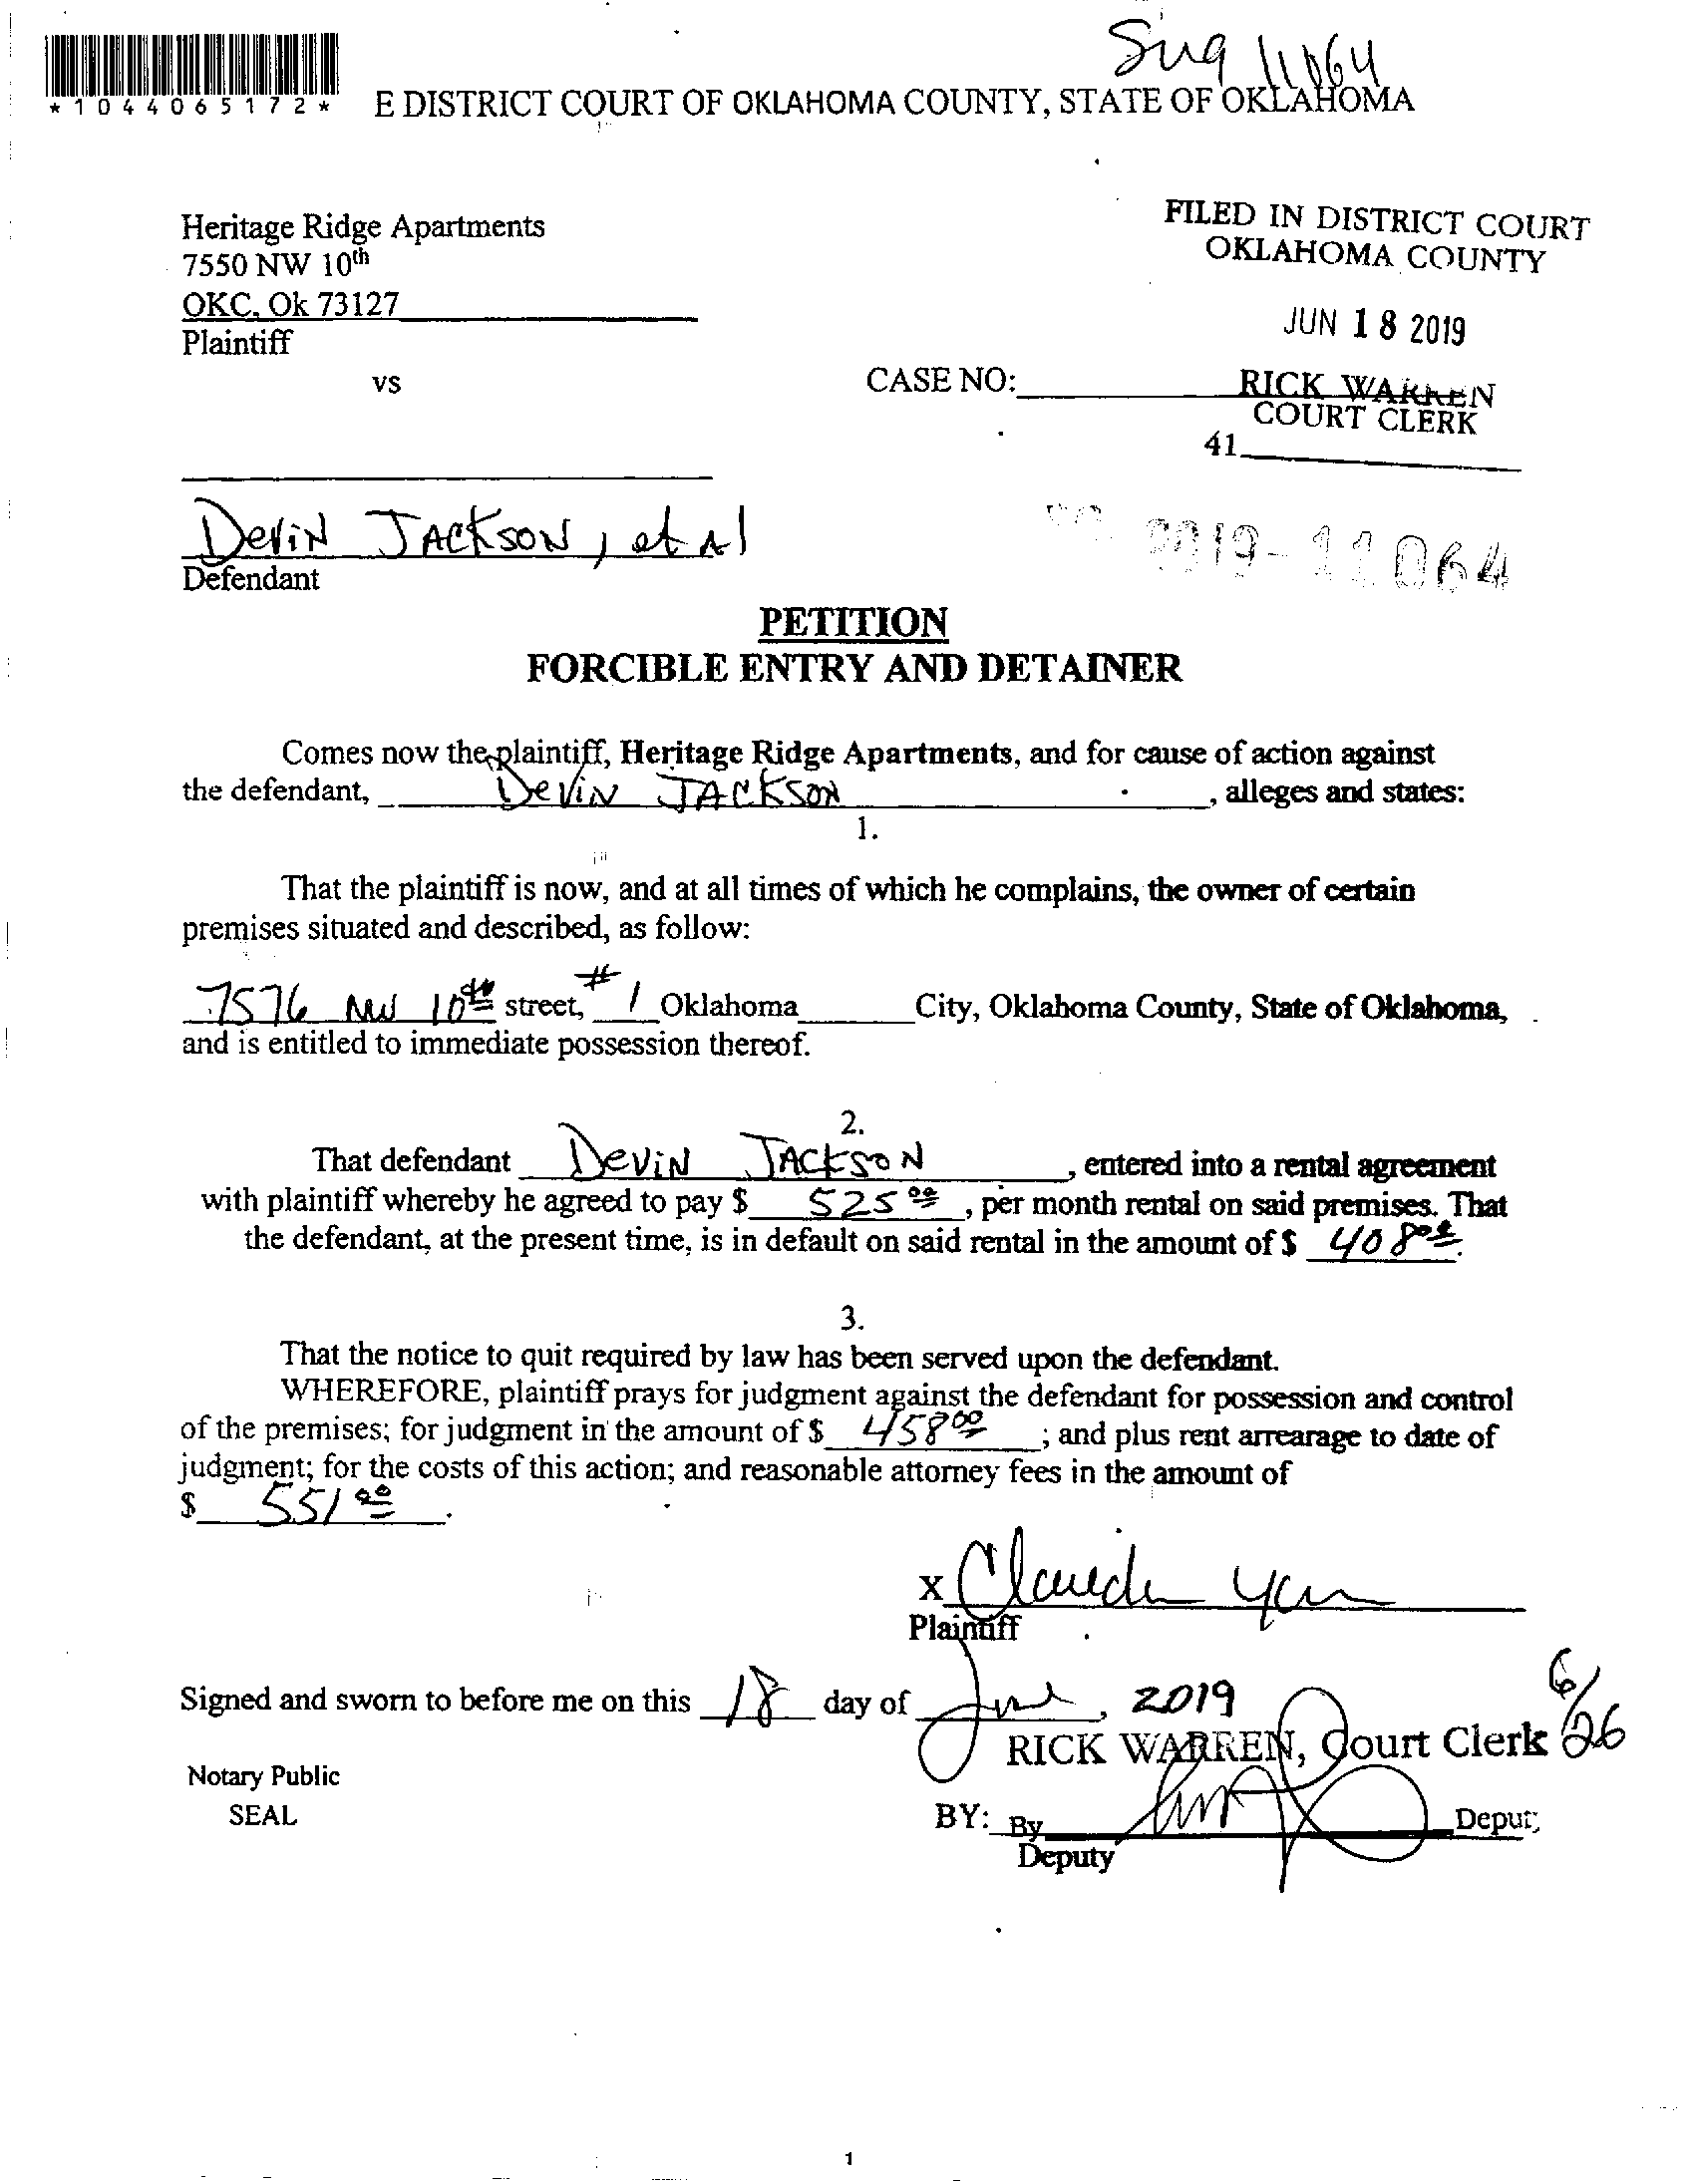 Sug 11064
*1044065172*
E DISTRICT COURT OF OKLAHOMA COUNTY, STATE OF OKLAHOMA
Heritage Ridge Apartments
7550 NW 10th
OKC, Ok 73127
Plaintiff
vs
FILED IN DISTRICT COURT
OKLAHOMA COUNTY
JUN 18 2019
CASE NO:
RICK WARREN
COURT CLERK
41
Devin JACKSON, et al
Defendant
2019-11064
PETITION
FORCIBLE ENTRY AND DETAINER
Comes now the plaintiff, Heritage Ridge Apartments, and for cause of action against
the defendant, Devin JACKSON, alleges and states:
1.
That the plaintiff is now, and at all times of which he complains, the owner of certain
premises situated and described, as follow:
7576 NW 10th street, #1 Oklahoma City, Oklahoma County, State of Oklahoma,
and is entitled to immediate possession thereof.
2.
That defendant DEVIN JACKSON, entered into a rental agreement
with plaintiff whereby he agreed to pay $ 525 00, per month rental on said premises. That
the defendant, at the present time, is in default on said rental in the amount of $ 408 00.
3.
That the notice to quit required by law has been served upon the defendant.
WHEREFORE, plaintiff prays for judgment against the defendant for possession and control
of the premises; for judgment in the amount of $ 458 00; and plus rent arrearage to date of
judgment; for the costs of this action; and reasonable attorney fees in the amount of
$ 551 00.
x
Plaintiff
Signed and sworn to before me on this 18 day of June, 2019
RICK WARREN, Court Clerk 6/26
Notary Public
SEAL
BY: By Deputy
Deputy
1